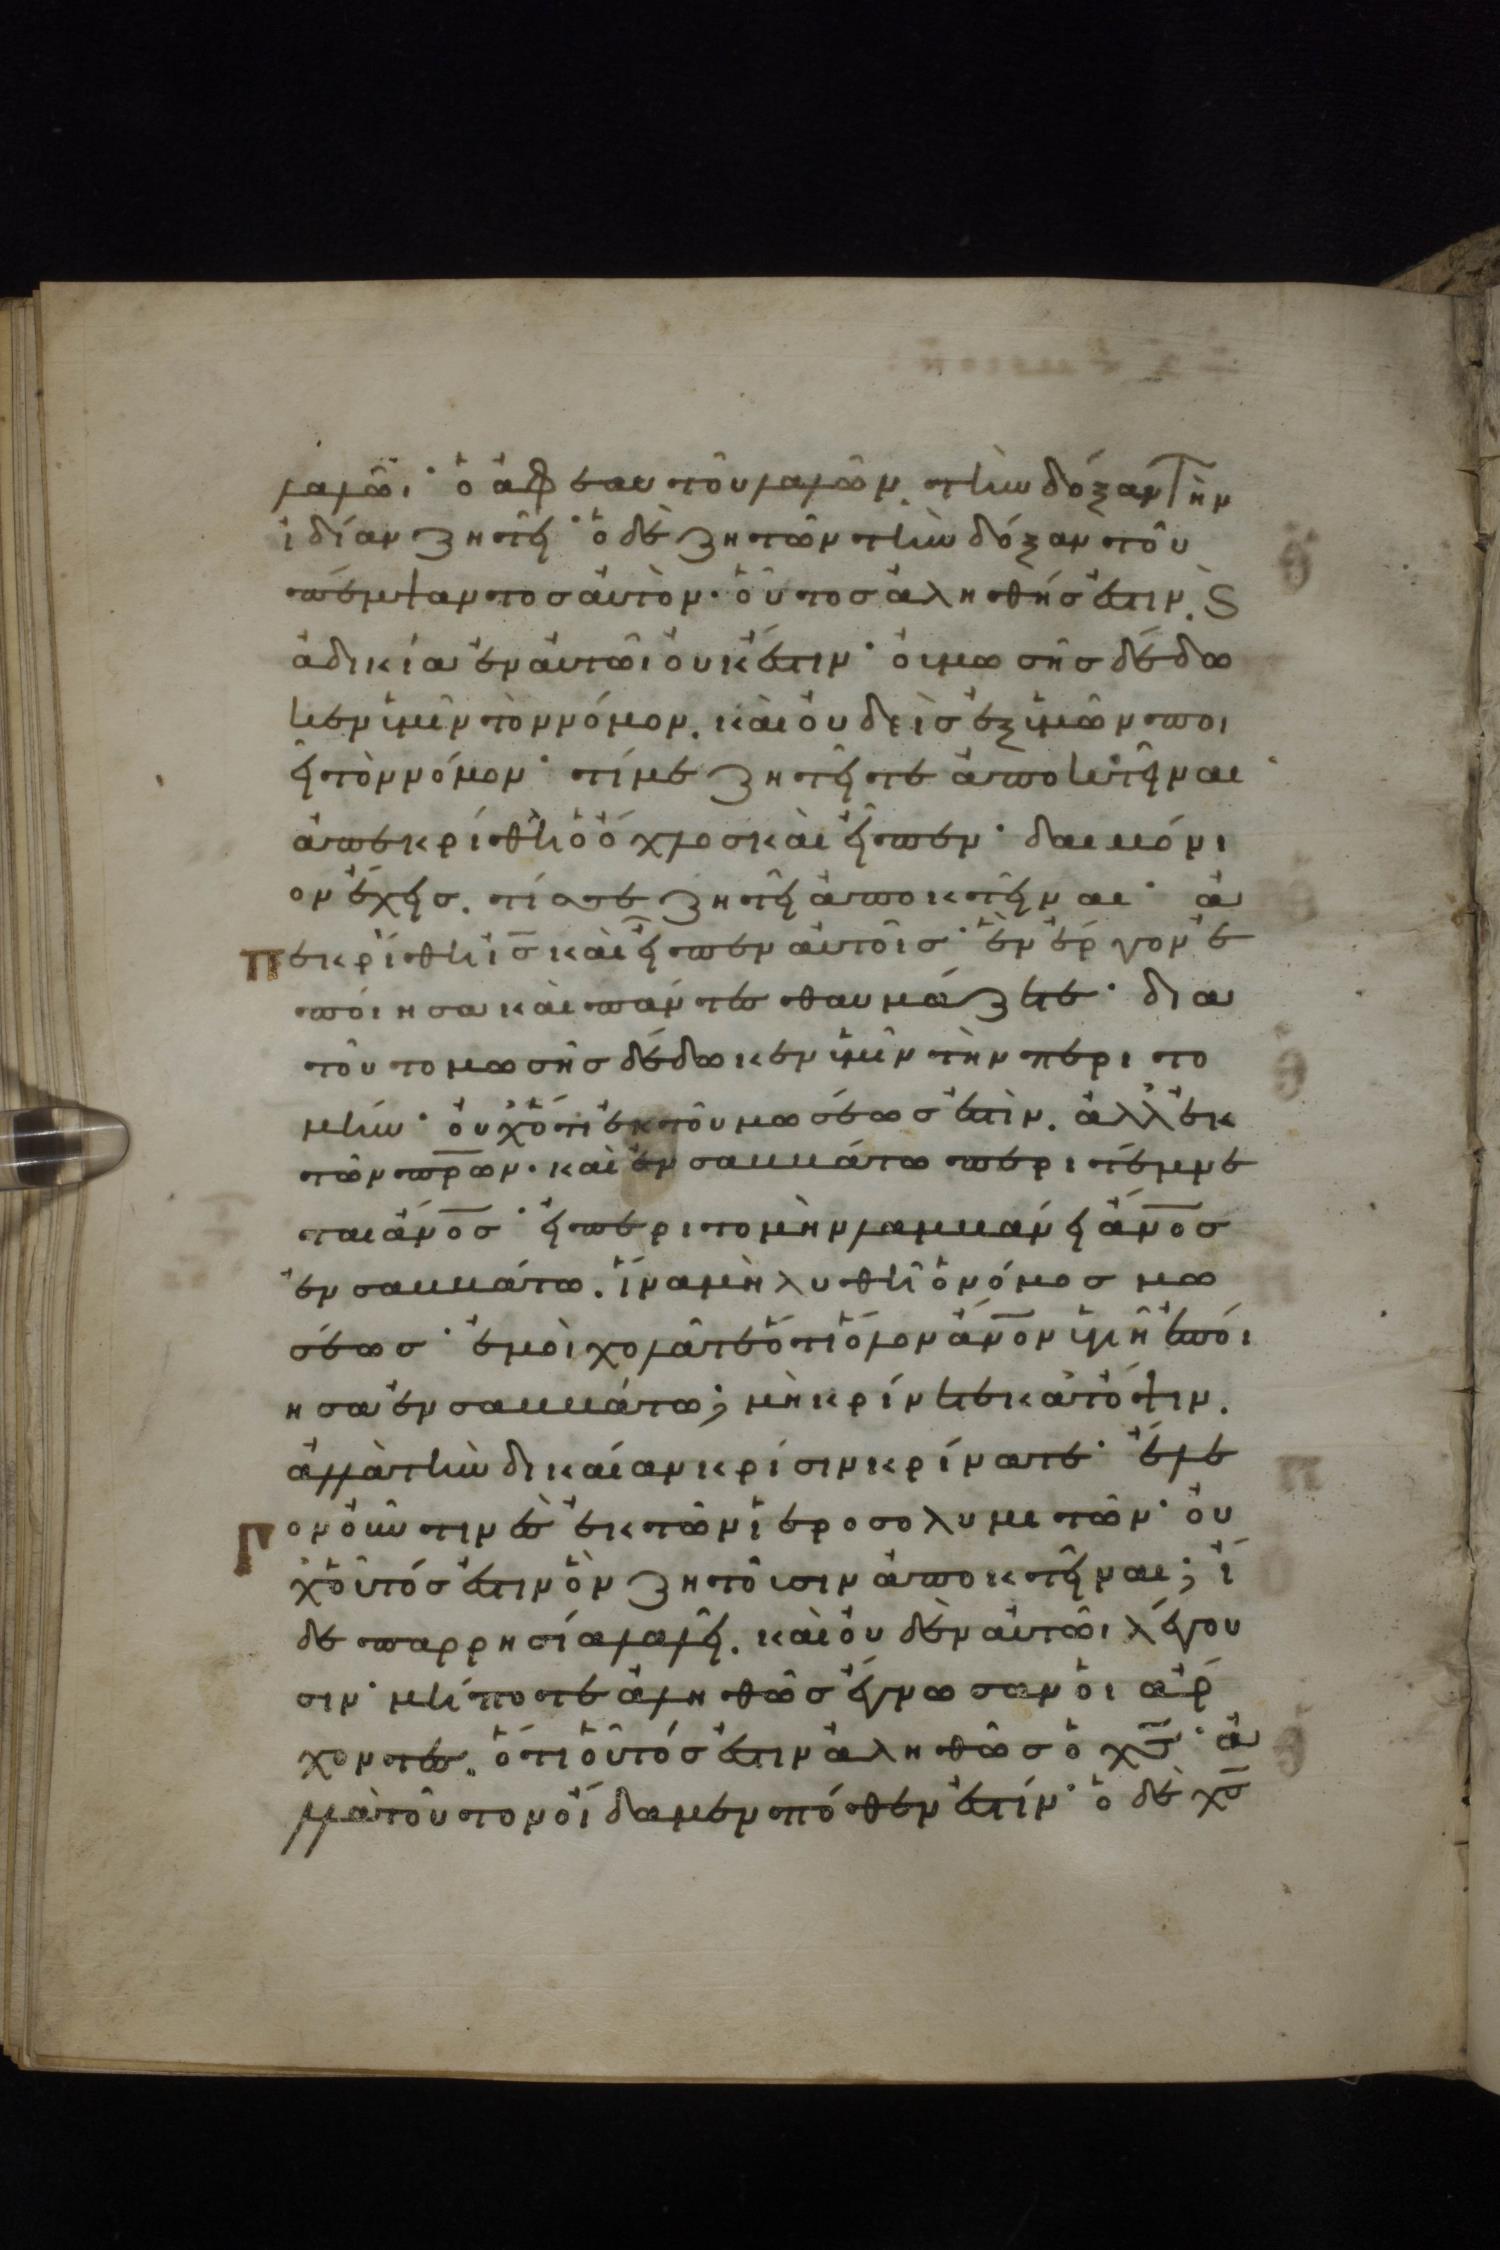 λαλῶι· ὁ ἀφ ἑαυτοῦ λαλῶν. τὴν δόξαν τὴν
ἰδίαν ζητεῖ· ὁ δὲ ζητῶν τὴν δόξαν τοῦ
πέμψαντος αὐτὸν· οὗτος ἀληθής ἐστιν. Ϛ
ἀδικία ἐν αὐτῶι οὐκ ἔστιν· οὐ μωσῆς δέδω
κεν ὑμῖν τὸν νόμον. καὶ οὐδεὶς ἐξ ὑμῶν ποι
εῖ τὸν νόμον· τί με ζητεῖτε ἀποκτεῖναι
ἀπεκρίθη ὁ ὄχλος καὶ εἶπεν· δαιμόνι
ον ἔχεις. τίς σε ζητεῖ ἀποκτεῖναι· ἀ
πεκρίθη ι̅σ̅ καὶ εἶπεν αὐτοῖς· ἓν ἔργον ἐ
ποίησα καὶ πάντες θαυμάζετε· δια
τοῦτο μωσῆς δέδωκεν ὑμῖν τὴν περιτο
μήν· οὐχ ὅτι ἐκ τοῦ μωσέως ἐστὶν. ἀλλ ἐκ
τῶν π̅ρ̅ω̅ν· καὶ ἐν σαββάτω περιτέμνε
ται ἄ̅ν̅ο̅σ̅· εἰ περιτομὴν λαμβάνει ἄ̅ν̅ο̅σ̅
ἐν σαββάτω. ἵνα μὴ λυθῆ ὁ νόμος μω
σέως· ἐμοὶ χολᾶτε ὅτι ὅλον ἄ̅ν̅ο̅ν̅ ὑγιῆ ἐποί
ησα ἐν σαββάτω; μὴ κρίνετε κατ ὄψιν.
ἀλλὰ τὴν δικαίαν κρίσιν κρίνατε· ἔλε
γον οὖν τινὲς ἐκ τῶν ἱεροσολυμιτῶν· οὐ
χ οὗτός ἐστιν ὃν ζητοῦσιν ἀποκτεῖναι; ἴ
δε παρρησία λαλεῖ. καὶ οὐδὲν αὐτῶι λέγου
σιν· μήποτε ἀληθῶς ἔγνωσαν οἱ ἄρ
χοντες. ὅτι οὗτός ἐστιν ἀληθῶς ὁ χ̅σ̅· ἀ
λλὰ τοῦτον οἴδαμεν πόθεν ἐστίν· ὁ δὲ χ̅σ̅